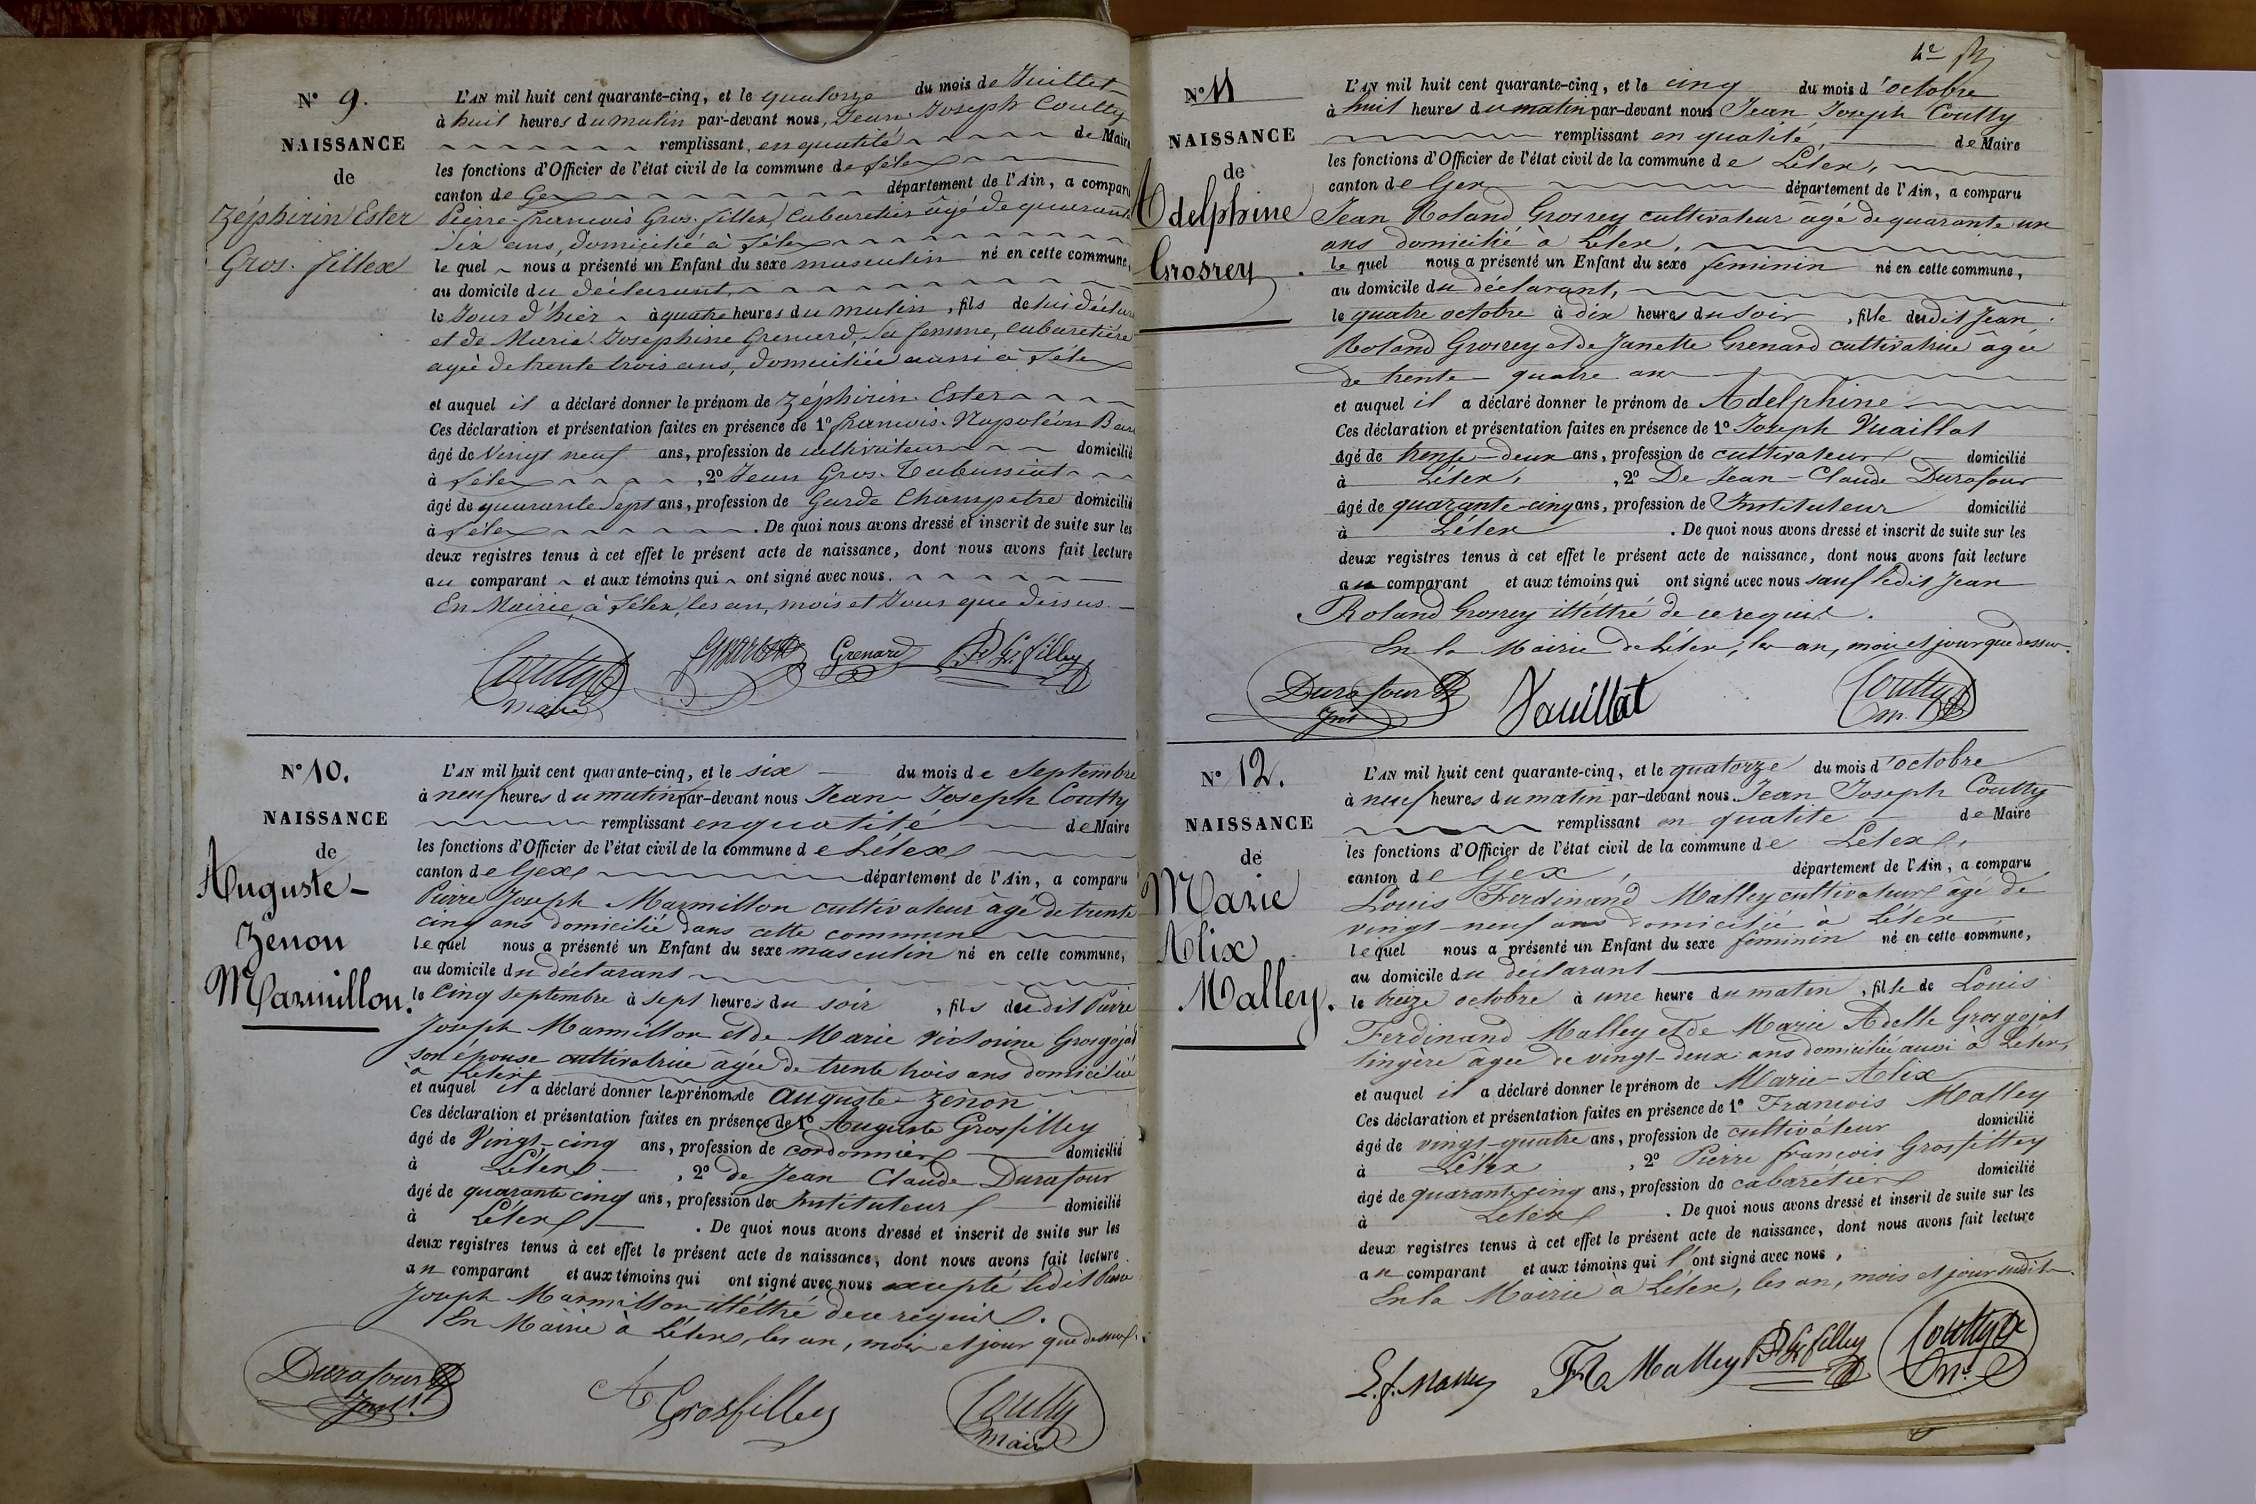 N° 9.
NAISSANCE
de
Zéphirin Ester
Gros. fillex
L'AN mil huit cent quarante-cinq, et le quatorze du mois de Juillet
à huit heures du matin par-devant nous, Jean Joseph Coutty
remplissant en qualité de Maire
les fonctions d'Officier de l'état civil de la commune de Lélex
canton de Gex département de l'Ain, a comparu
Pierre-francois Gros. fillex, Cabaretier âgé de quarante
six ans, domicilié à Lélex
le quel nous a présenté un Enfant du sexe masculin né en cette commune,
au domicile du déclarant,
le Jour d'hier à quatre heures du matin, fils de lui déclar
et de Maria Josephine Grenard, sa femme, cabaretière
agée de trente trois ans, domiciliée aussi à Lélex
et auquel il a déclaré donner le prénom de Zéphirin Ester
Ces déclaration et présentation faites en présence de 1° francois-Napoléon
âgé de vingt neuf ans, profession de cultivateur domicilié
à Lélex, 2° Jean Gros-Tabussiat
âgé de quarante sept ans, profession de Garde Champetre domicilié
à Lélex. De quoi nous avons dressé et inscrit de suite sur les
deux registres tenus à cet effet le présent acte de naissance, dont nous avons fait lecture
au comparant et aux témoins qui ont signé avec nous.
En Mairie, à Lélex, les an, mois et Jour que dessus.
Coutty Grenard P. F. G. filley
maire
N° 10.
NAISSANCE
de
Auguste-
Zenon
Marmillon.
L'AN mil huit cent quarante-cinq, et le six du mois de Septembre
à neuf heures du matin par-devant nous Jean-Joseph Coutty
remplissant en qualité de Maire
les fonctions d'Officier de l'état civil de la commune de Lélex
canton de Gex département de l'Ain, a comparu
Pierre Joseph Marmillon cultivateur âgé de trente
cinq ans domicilié dans cette commune
le quel nous a présenté un Enfant du sexe masculin né en cette commune,
au domicile du déclarant
le cinq septembre à sept heures du soir, fils dudit Pierre
Joseph Marmillon et de Marie Victorine Grosgojat
son épouse cultivatrice âgée de trente trois ans domiciliée
à Lélex
et auquel il a déclaré donner les prénoms de Auguste-Zenon
Ces déclaration et présentation faites en présence de 1° Auguste Grosfilley
âgé de Vingt-cinq ans, profession de cordonnier domicilié
à Lélex, 2° de Jean Claude Durafour
âgé de quarante cinq ans, profession de Instituteur domicilié
à Lélex. De quoi nous avons dressé et inscrit de suite sur les
deux registres tenus à cet effet le présent acte de naissance, dont nous avons fait lecture
au comparant et aux témoins qui ont signé avec nous excepté ledit Pierre
Joseph Marmillon illétré de ce requis.
En Mairie à Lélex, les an, mois et jour que dessus.
Durafour A Grosfilley Coutty
Inst. maire
N° 11
NAISSANCE
de
Adelphine
Grosrey.
L'AN mil huit cent quarante-cinq, et le cinq du mois d'octobre
à huit heures du matin par-devant nous Jean Joseph Coutty
remplissant en qualité de Maire
les fonctions d'Officier de l'état civil de la commune de Lélex,
canton de Gex département de l'Ain, a comparu
Jean Roland Grosrey cultivateur âgé de quarante un
ans domicilié à Lélex,
le quel nous a présenté un Enfant du sexe feminin né en cette commune,
au domicile du déclarant,
le quatre octobre à dix heures du soir, fille dudit Jean
Roland Grosrey et de Janette Grenard cultivatrice âgée
de trente-quatre ans
et auquel il a déclaré donner le prénom de Adelphine
Ces déclaration et présentation faites en présence de 1° Joseph Vuaillat
âgé de trente-deux ans, profession de cultivateur domicilié
à Lélex, 2° De Jean-Claude Durafour
âgé de quarante-cinq ans, profession de Instituteur domicilié
à Lélex. De quoi nous avons dressé et inscrit de suite sur les
deux registres tenus à cet effet le présent acte de naissance, dont nous avons fait lecture
au comparant et aux témoins qui ont signé avec nous sauf ledit Jean
Roland Grosrey illétré de ce requis.
En la Mairie de Lélex, les an, mois et jour que dessus.
Durafour Vouillat Coutty
Inst m.
N° 12.
NAISSANCE
de
Marie
Alix
Malley.
L'AN mil huit cent quarante-cinq, et le quatorze du mois d'octobre
à neuf heures du matin par-devant nous Jean Joseph Coutty
remplissant en qualité de Maire
les fonctions d'Officier de l'état civil de la commune de Lélex,
canton de Gex, département de l'Ain, a comparu
Louis Ferdinand Malley cultivateur âgé de
vingt-neuf ans domicilié à Lélex
lequel nous a présenté un Enfant du sexe feminin né en cette commune,
au domicile du déclarant
le treize octobre à une heure du matin, fille de Louis
Ferdinand Malley et de Marie Adelle Grosgojat
lingère âgée de vingt-deux ans domiciliée aussi à Lélex,
et auquel il a déclaré donner le prénom de Marie-Alix
Ces déclaration et présentation faites en présence de 1° Francois Malley
âgé de vingt-quatre ans, profession de cultivateur domicilié
à Lélex, 2° Pierre francois Grosfilley
âgé de quarante cinq ans, profession de cabarétier domicilié
à Lélex. De quoi nous avons dressé et inscrit de suite sur les
deux registres tenus à cet effet le présent acte de naissance, dont nous avons fait lecture
au comparant et aux témoins qui l'ont signé avec nous,
En la Mairie à Lélex, les an, mois et jour susdit
L. f. Malley Malley filley Coutty
m.